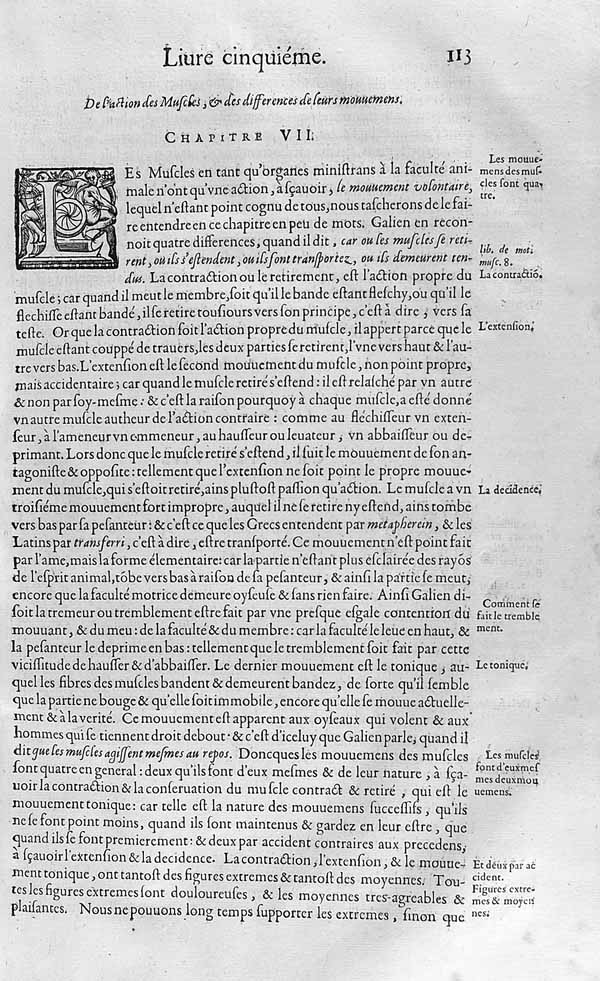 Liure cinquiéme. 113
De l'action des Muſcles, & des differences de leurs mouuemens.
CHAPITRE VII.
LEs Muſcles en tant qu'organes miniſtrans à la faculté ani-
male n'ont qu'vne action, à ſçauoir, le mouuement volontaire,
lequel n'eſtant point cognu de tous, nous taſcherons de le fai-
re entendre en ce chapitre en peu de mots. Galien en recon-
noit quatre differences, quand il dit, car ou les muſcles ſe reti-
rent, ou ils s'eſtendent, ou ils ſont tranſportez, ou ils demeurent ten-
dus. La contraction ou le retirement, eſt l'action propre du
muſcle; car quand il meut le membre, ſoit qu'il le bande eſtant fleſchy, ou qu'il le
flechiſſe eſtant bandé, il ſe retire touſiours vers ſon principe, c'eſt à dire, vers ſa
teſte. Or que la contraction ſoit l'action propre du muſcle, il appert parce que le
muſcle eſtant couppé de trauers, les deux parties ſe retirent, l'vne vers haut & l'au-
tre vers bas. L'extenſion eſt le ſecond mouuement du muſcle, non point propre,
mais accidentaire; car quand le muſcle retiré s'eſtend: il eſt relaſché par vn autre
& non par ſoy-meſme: & c'eſt la raiſon pourquoy à chaque muſcle, a eſté donné
vn autre muſcle autheur de l'action contraire: comme au fléchiſſeur vn exten-
ſeur, à l'ameneur vn emmeneur, au hauſſeur ou leuateur, vn abbaiſſeur ou de-
primant. Lors donc que le muſcle retiré s'eſtend, il ſuit le mouuement de ſon an-
tagoniſte & oppoſite: tellement que l'extenſion ne ſoit point le propre mouue-
ment du muſcle, qui s'eſtoit retiré, ains pluſtoſt paſſion qu'action. Le muſcle a vn
troiſiéme mouuement fort impropre, auquel il ne ſe retire ny eſtend, ains tombe
vers bas par ſa peſanteur: & c'eſt ce que les Grecs entendent par metapherein, & les
Latins par transferri, c'eſt à dire, eſtre tranſporté. Ce mouuement n'eſt point fait
par l'ame, mais la forme élementaire: car la partie n'eſtant plus eſclairée des rayõs
de l'eſprit animal, tõbe vers bas à raiſon de ſa peſanteur, & ainſi la partie ſe meut,
encore que la faculté motrice demeure oyſeuſe & ſans rien faire. Ainſi Galien di-
ſoit la tremeur ou tremblement eſtre fait par vne preſque eſgale contention du
mouuant, & du meu: de la faculté & du membre: car la faculté le leue en haut, &
la peſanteur le deprime en bas: tellement que le tremblement ſoit fait par cette
viciſſitude de hauſſer & d'abbaiſſer. Le dernier mouuement eſt le tonique, au-
quel les fibres des muſcles bandent & demeurent bandez, de ſorte qu'il ſemble
que la partie ne bouge & qu'elle ſoit immobile, encore qu'elle ſe mouue actuelle-
ment & à la verité. Ce mouuement eſt apparent aux oyſeaux qui volent & aux
hommes qui ſe tiennent droit debout: & c'eſt d'iceluy que Galien parle, quand il
dit que les muſcles agiſſent meſmes au repos. Doncques les mouuemens des muſcles
ſont quatre en general: deux qu'ils ſont d'eux meſmes & de leur nature, à ſça-
uoir la contraction & la conſeruation du muſcle contract & retiré, qui eſt le
mouuement tonique: car telle eſt la nature des mouuemens ſucceſſifs, qu'ils
ne ſe font point moins, quand ils ſont maintenus & gardez en leur eſtre, que
quand ils ſe font premierement: & deux par accident contraires aux precedens,
à ſçauoir l'extenſion & la decidence. La contraction, l'extenſion, & le mouue-
ment tonique, ont tantoſt des figures extremes & tantoſt des moyennes. Tou-
tes les figures extremes ſont douloureuſes, & les moyennes tres-agreables &
plaiſantes. Nous ne pouuons long temps ſupporter les extremes, ſinon que
Les mouue-
mens des muſ-
cles ſont qua-
tre.
lib. de mot.
muſc. 8.
La contractiõ.
L'extenſion.
La decidence.
Comment ſe
fait le tremble
ment.
Le tonique.
Les muſcles
ſont d'eux meſ
mes deux mou
uemens.
Et deux par ac
cident.
Figures extre-
mes & moyen
nes.